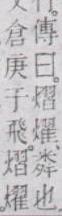 傳曰。熠燿。粦也
倉庚于飛。熠燿